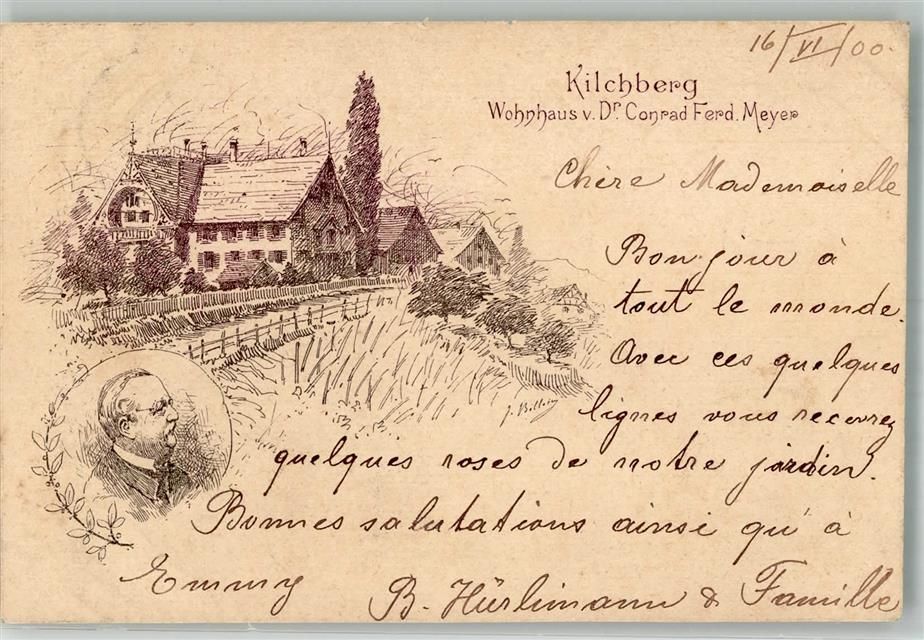 16/VI/00.
Kilchberg
Wohnhaus v. Dr. Conrad Ferd. Meyer
Chère Mademoiselle
Bonjour à
tout le monde.
Avec ces quelques
lignes vous recevrez
quelques roses de notre jardin.
Bonnes salutations ainsi qu'à
Emmy
B. Hürlimann & Famille